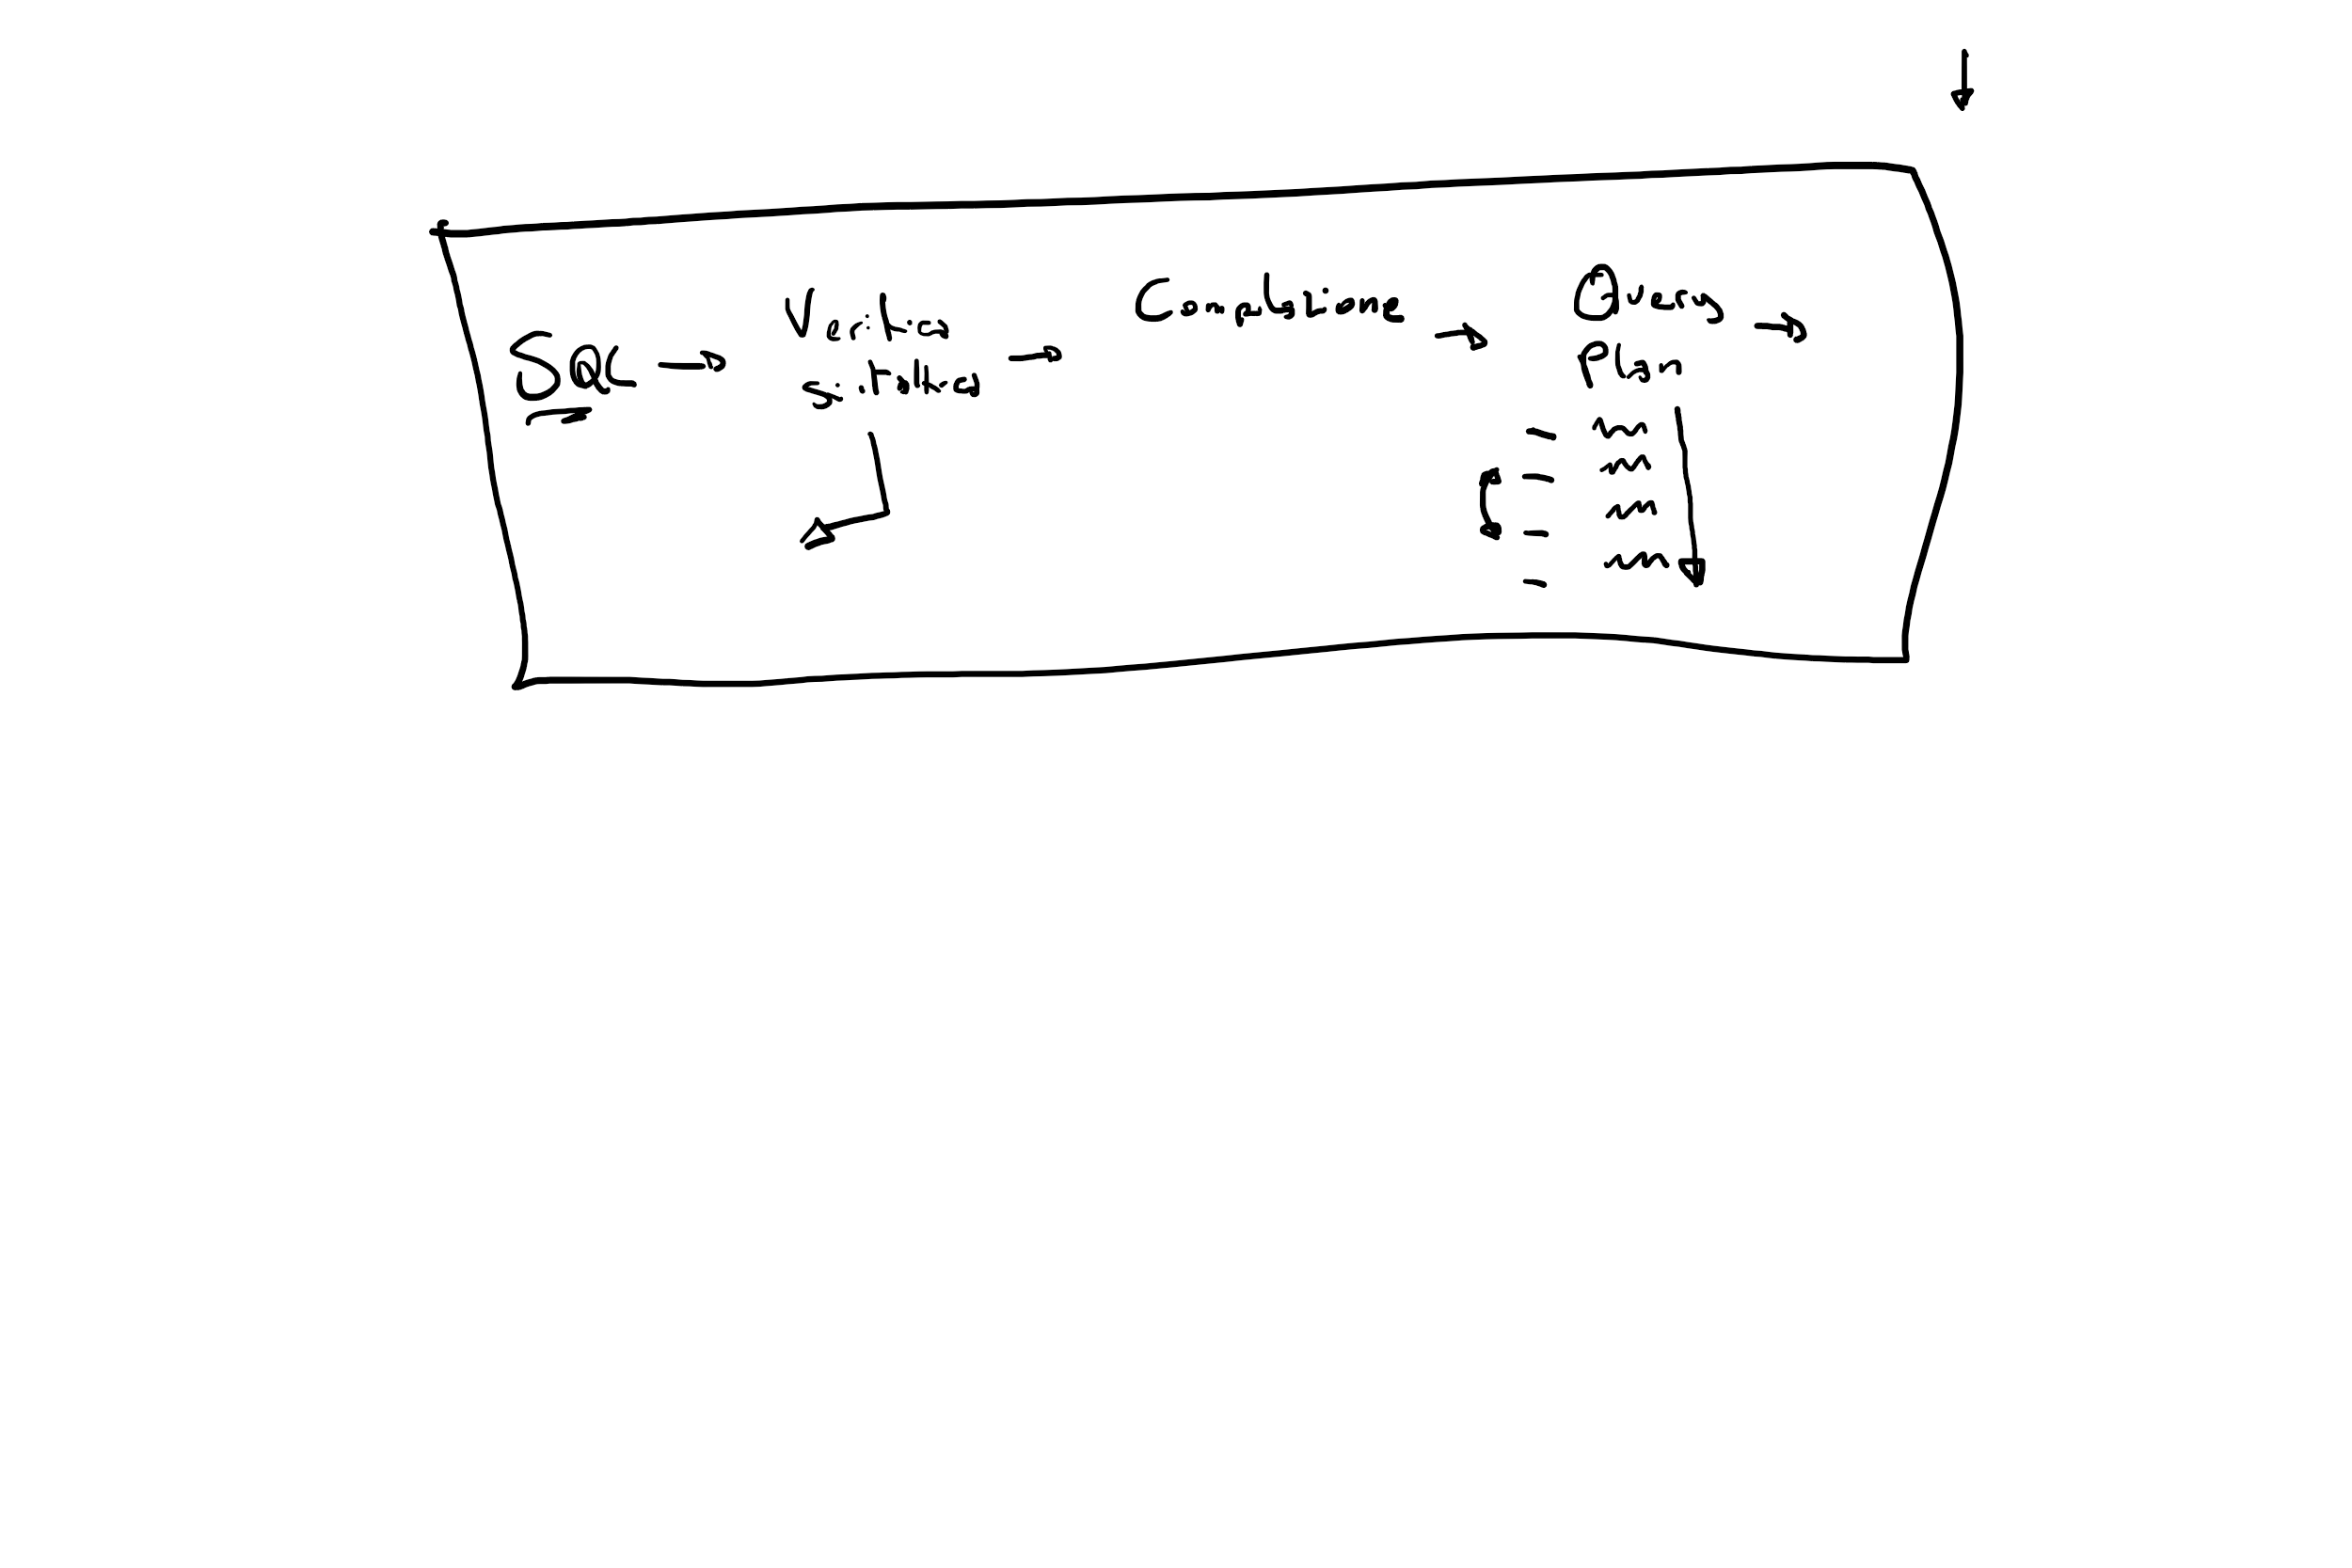 SQL
Verifica
sintattica
Compilazione
Query
Plan